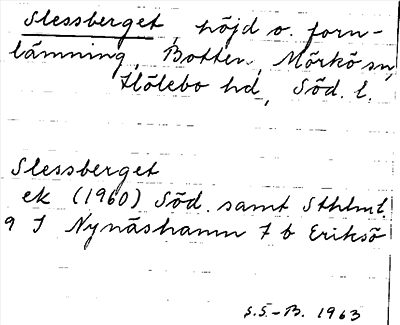 Slessberget, höjd o. forn-
lämning, Botten, Mörkö sn,
Hölebo hd, Söd. l.
Slessberget
ek (1960) Söd. samt Sthlm l.
9 I Nynäshamn 7 b Eriksö
S.S.-B. 1963